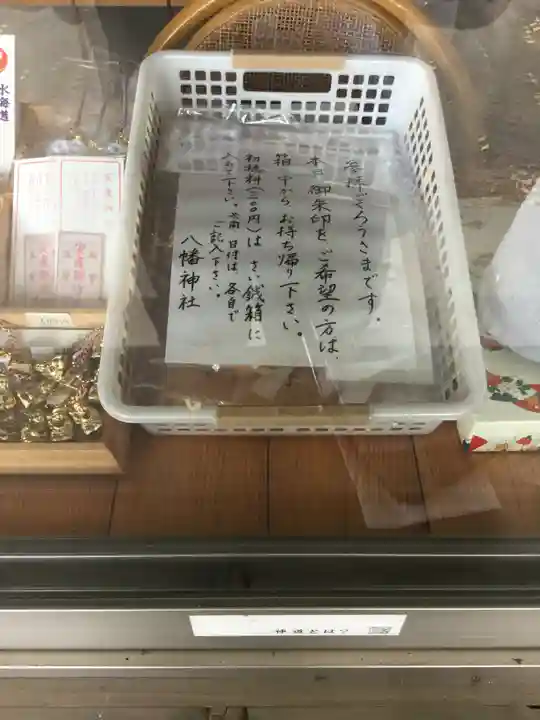 参拝ごくろうさまです。
本日 御朱印を、ご希望の方は、
箱の中から お持ち帰り下さい。
初穂料(三〇〇円)は さい銭箱に
入れて下さい。尚 日付は、各自で
ご記入下さい。
八幡神社
水海道
神道とは?